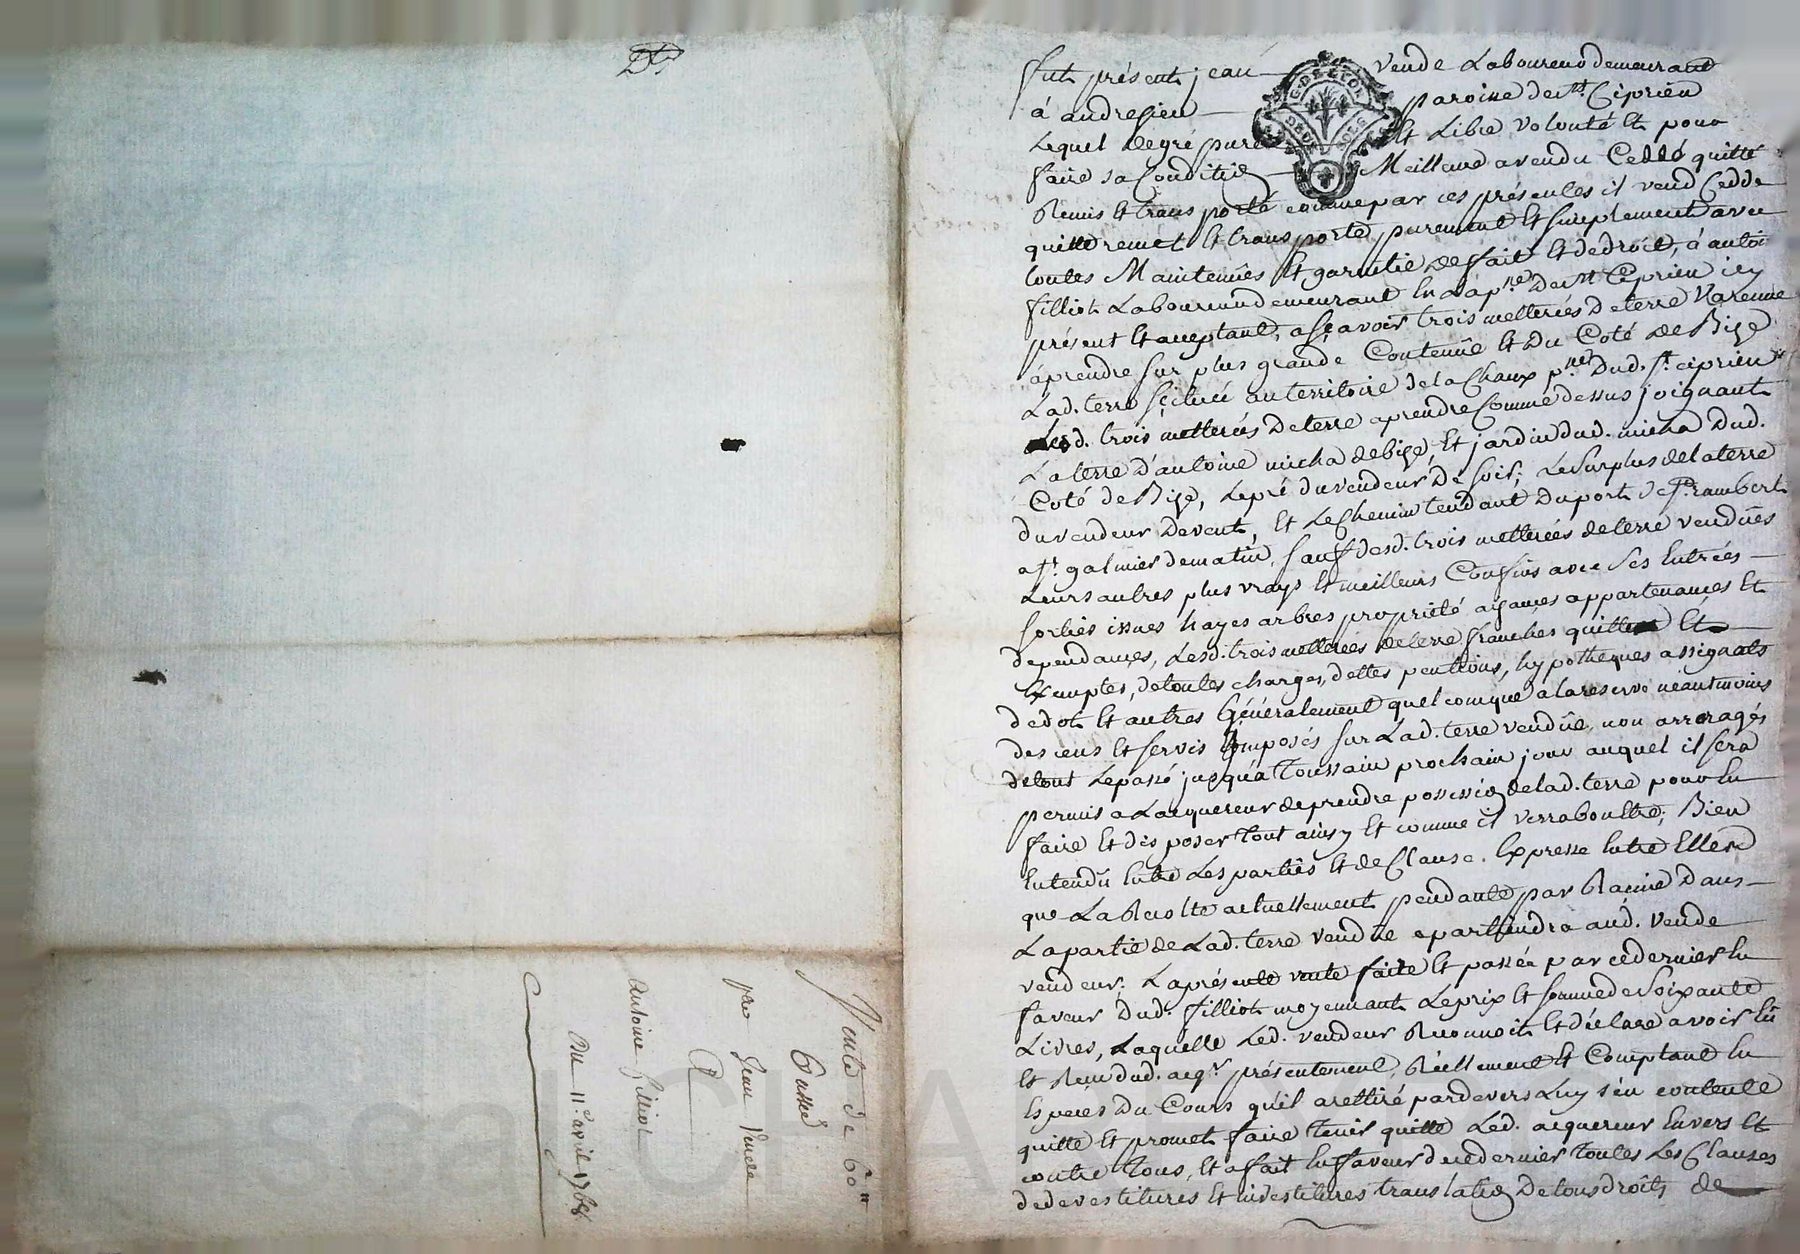 fut présent jean vende Laboureur demeurant
á andresieu paroisse de st. Ciprien
Lequel degré pure et Libre volonté Et pour
faire sa Condition Meilleure avendu Ceddé quitté
Remis Et transporté comme par ces présentes il vend Cedde
quitte remet Et transporte purement Et simplement avec
toutes Maintenües Et garantie de fait Et dedroit, á antoi
filliot Laboureur demeurant En Lap.sse Dest Ciprien icy
présent Et acceptant, asçavoir trois metterées Deterre Varenne
áprendre sur plus grande Contenüe Et Du Coté de Bigé
Lad. terre scituée au territoire de la Chaux p.sse Dud. st. ciprien
Lesd. trois metterées Deterre aprendre Comme dessus joignant
La terre D'antoine micha debigé, Et jardin dud. micha Dud.
Coté de Bigé, Le pré du vendeur De soir; Le surplus de la terre
du vendeur Devent, Et Le Chemin tendant Du port de st. rambert
a st. galmier dematin, sauf desd. trois metterées deterre vendües
Leurs autres plus vrays Et meilleurs Confins avec ses Entrées
sorties issues hayes arbres propriété aisances appartenances Et
dependances, Lesd. trois metterées deterre franches quittes Et
Exemptes, detoutes charges, dettes pentions, hypotheques assignats
dedot Et autres Généralement quelconque alareserve neantmoins
des cens Et servis Imposés sur Lad. terre vendüe, non arreragés
detout Lepassé jusqu'a toussain prochain jour auquel il sera
permis a Lacquereur deprendre possession delad. terre pour En
faire Et disposer tout ainsy Et comme il verra boultre; Bien
Entendu Entre Les parties Et de Clause Expresse Entre Elles
que La Recolte actuellement pendante par Racine Dans
La partie de Lad. terre vendüe apartiendra aud. vende
vendeur; La présente vente faite Et passée par cedernier En
faveur Dud. filliot moyennant Le prix Et somme de Soixante
Livres, Laquelle Led. vendeur Reconnoit Et déclare avoir Eü
Et Reçu dud. acqr. présentement, Réellement Et Comptant En
Especes Du Cours qu'il a rettiré pardevers Luy s'en contente
quitte Et promet faire tenir quitte Led. acquereur Envers Et
contre tous, Et a fait En faveur ducedernier toutes Les Clauses
dedevestitures Et investitures translation De tous droits de
Vente de 60 ll
Passée
par Jean Vende
A
Antoine filliot
Du 11e. avril 1768.
G. DE LYON
DEUX SOLS